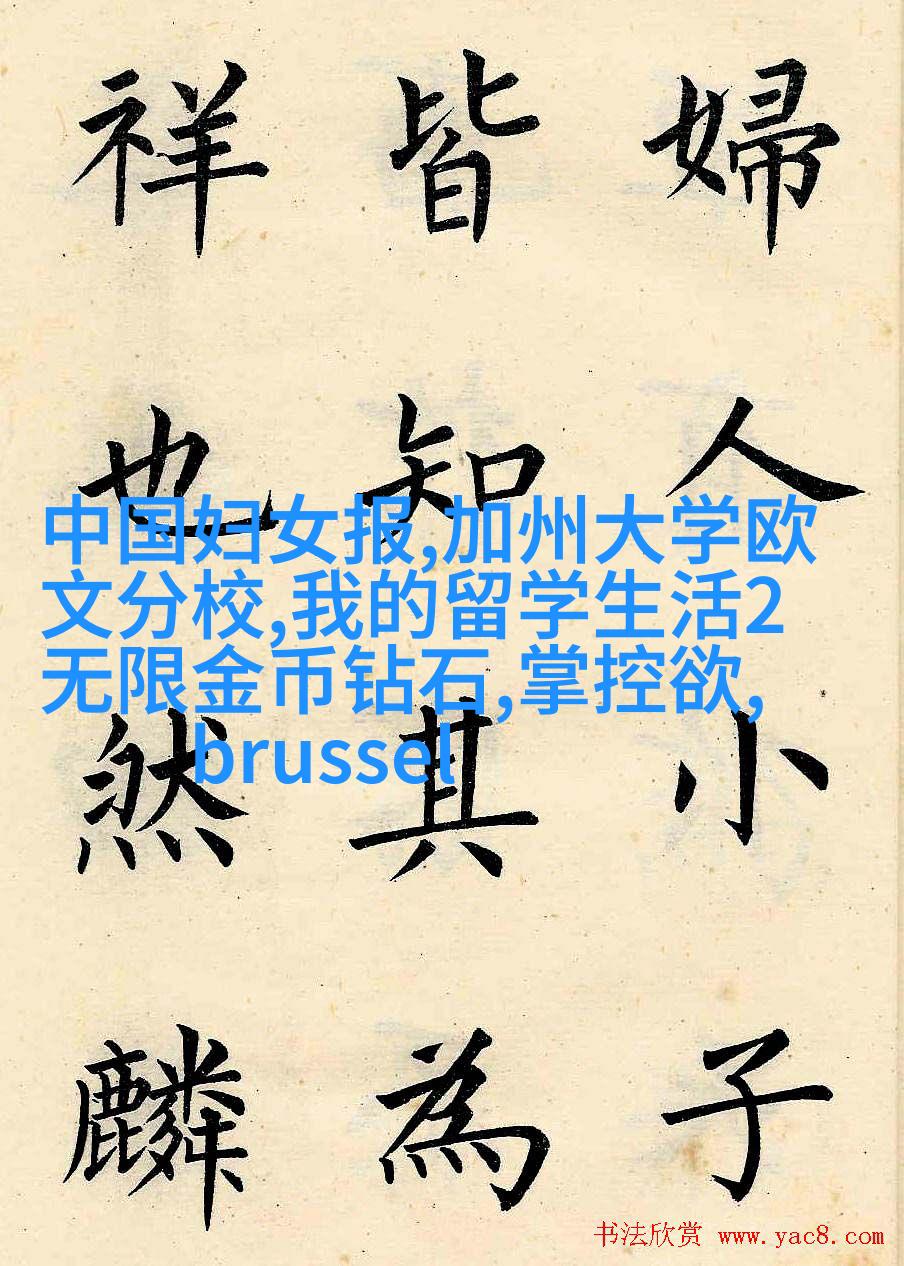 婦人小子
皆知其為
祥也然麟
中国妇女报,加州大学欧
文分校,我的留学生活2
无限金币钻石,掌控欲,
brussel
书法欣赏 www.yac8.com